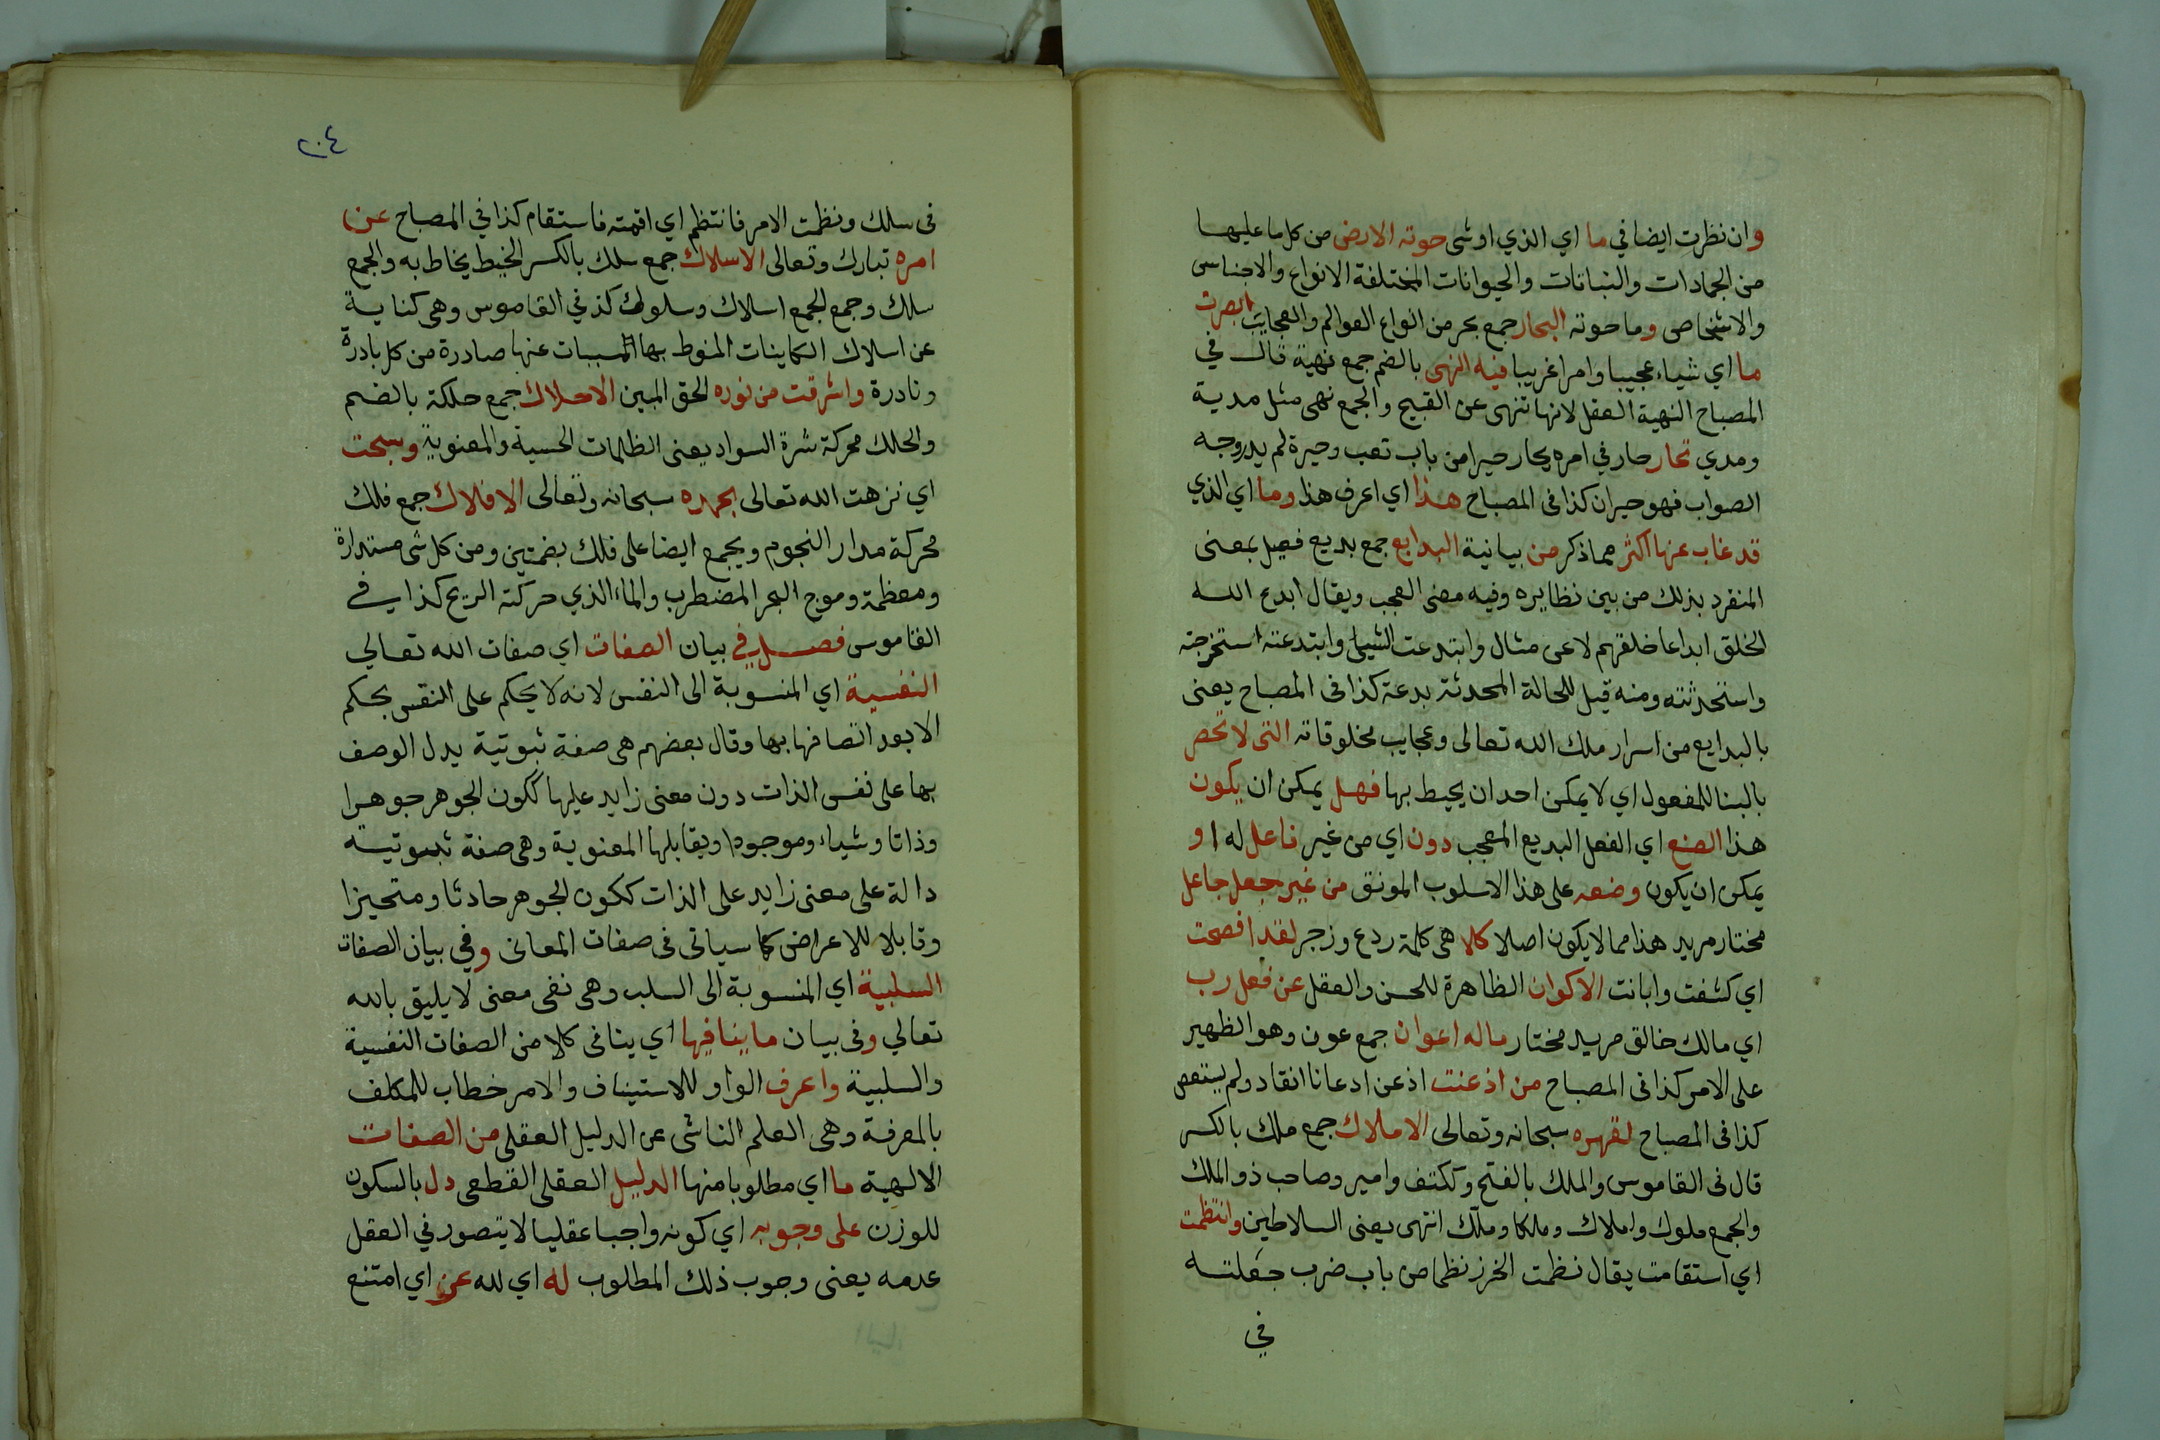 وان نظرت ايضا في ما اي الذي او شي حوته الارض من كل ما عليها
من الجمادات والنباتات والحيوانات المختلفة الانواع والاجناس
والاشخاص وما حوته البحار جمع بحر من انواع العوالم والعجايب ابصرت
ما اي شياء عجيبا وامرا غريبا فيه النهى بالضم جمع نهية قال في
المصباح النهية العقل لانها تنهى عن القبيح والجمع نهى مثل مدية
ومدي تحار حار في امره يحار حيرا من باب تعب وحيرة لم يدر وجه
الصواب فهو حيران كذا في المصباح هذا اي اعرف هذا وما اي الذي
قد غاب عنها اكثر مما ذكر من بيانية البدايع جمع بديع فعيل بمعنى
المنفرد بذلك من بين نظايره وفيه معنى العجب ويقال ابدع الله
الخلق ابداعا خلقهم لا عن مثال وابتدعت الشي وابتدعته استخرجته
واستحدثته ومنه قيل للحالة المحدثة بدعة كذا في المصباح يعنى
بالبدايع من اسرار ملك الله تعالى وعجايب مخلوقاته التى لا تحصر
بالبنا للمفعول اي لا يمكن احد ان يحيط بها فهل يمكن ان يكون
هذا الصنع اي الفعل البديع المعجب دون اي من غير فاعل له او
يمكن ان يكون وضعه على هذا الاسلوب المونق من غير جعل جاعل
مختار مريد هذا مما لا يكون اصلا كلا هى كلمة ردع وزجر لقد افصحت
اي كشفت وابانت الاكوان الظاهرة للحس والعقل عن فعل رب
اي مالك خالق مريد مختار ماله اعوان جمع عون وهو الظهير
على الامر كذا فى المصباح من اذعنت اذعن اذعانا انقاد ولم يستعص
كذا فى المصباح لقهره سبحانه وتعالى الاملاك جمع ملك بالكسر
قال فى القاموس والملك بالفتح وككتف وامير وصاحب ذو الملك
والجمع ملوك واملاك وملكا وملك انتهى يعنى السلاطين وانتظمت
اي استقامت يقال نظمت الخرز نظما من باب ضرب جعلته
في
٢٠٤
فى سلك ونظمت الامر فانتظم اي اقمته فاستقام كذا في المصباح عن
امره تبارك وتعالى الاسلاك جمع سلك بالكسر الخيط يخاط به والجمع
سلك وجمع الجمع اسلاك وسلوك كذ في القاموس وهى كناية
عن اسلاك الكاينات المنوط بها المسببات عنها صادرة من كل بادرة
ونادرة واشرقت من نوره الحق المبين الاحلاك جمع حلكة بالضم
والحلك محركة شرة السواد يعنى الظلمات الحسية والمعنوية وسبحت
اي نزهت الله تعالى بحمده سبحانه وتعالى الافلاك جمع فلك
محركة مدار النجوم ويجمع ايضا على فلك بضمتين ومن كل شى مستداره
ومعظمة وموج البحر المضطرب والماء الذي حركته الريح كذا في
القاموس فصل في بيان الصفات اي صفات الله تعالي
النفسية اي المنسوبة الى النفس لانه لا يحكم على النفس بحكم
الا بعد اتصافها بها وقال بعضهم هى صفة ثبوتية يدل الوصف
بها على نفس الذات دون معنى زايد عليها ككون الجوهر جوهرا
وذاتا وشياء وموجودا ويقابلها المعنوية وهى صفة ثبوتية
دالة على معنى زايد على الذات ككون الجوهر حادثا ومتحيزا
وقابلا للاعراض كما سياتى فى صفات المعانى وفي بيان الصفات
السلبية اي المنسوبة الى السلب وهى نفى معنى لا يليق بالله
تعالي وفى بيان ما ينافيها اي ينافى كلا من الصفات النفسية
والسلبية واعرف الواو للاستيناف والامر خطاب للمكلف
بالمعرفة وهى العلم الناشى عن الدليل العقلى من الصفات
الالهية ما اي مطلوبا منها الدليل العقلى القطعى دل بالسكون
للوزن على وجوبه اي كونه واجبا عقليا لا يتصور في العقل
عدمه يعنى وجوب ذلك المطلوب له اي لله عز اي امتنع